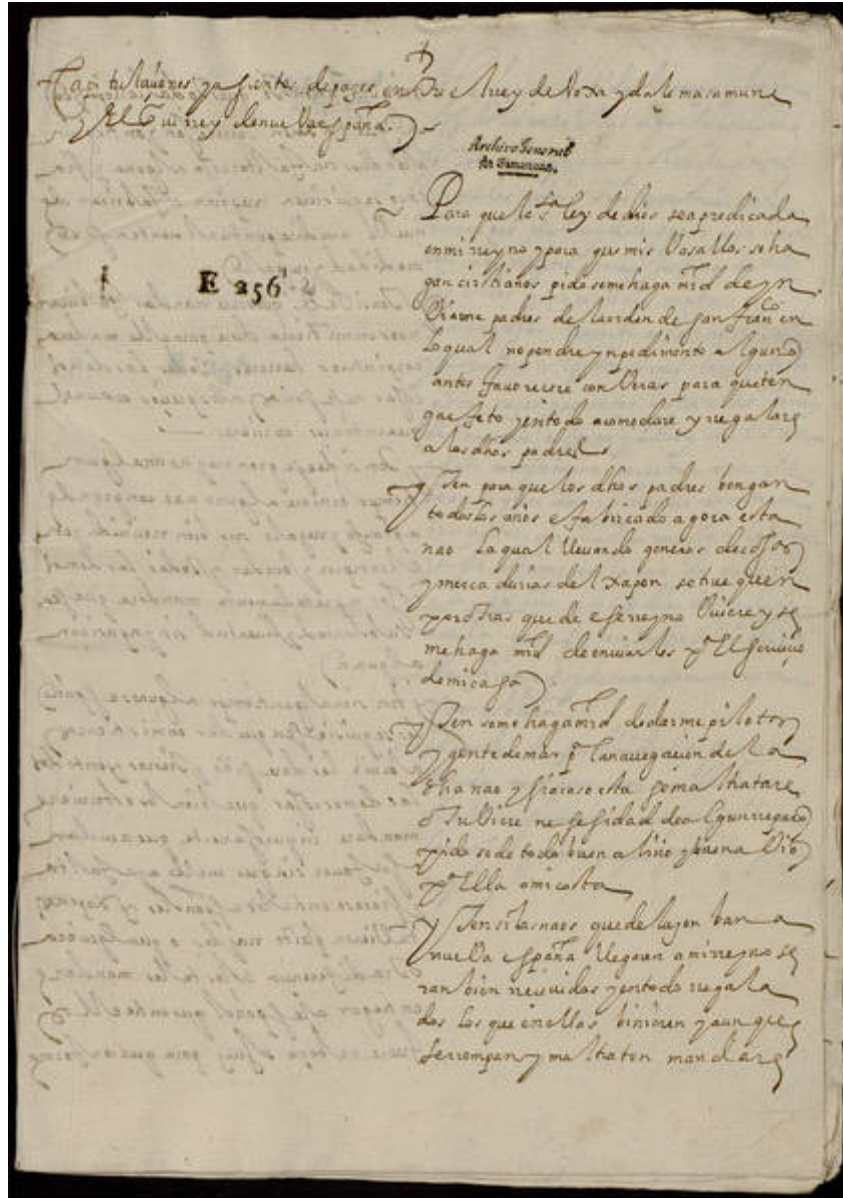 Capitulaçiones y asientos de pazes entre el rey de Voxa ydate masamune
y El Virrey de nueva españa.
Archivo General
de Simancas.
E 256
Para que la sta ley de dios sea predicada
en mi reyno y para que mis Vasallos se ha
gan cristianos pido se me haga mrd de yn
Viarme padres de la orden de san franco en
lo qual no pondre ynpedimento alguno
antes favorecere con Veras para que ten
ga efeto y en todo acomodare y regalare
a los dhos padres
Yten para que los dhos padres bengan
todos los años e fabricado agora esta
nao la qual llevando generos de cosas
y mercadurias del xapon se truequen
por otras que de ese reyno Viniere y se
me haga mrd de enviarles pa El serviçio
de mi casa
Yten se me haga mrd de darme pilotos
y gente de mar pa la navegaçion de la
dha nao y si acaso esta se maltratare
o tuViere neçesidad de algun reparo
pido se de todo buen aViso y buena Via
pa Ella a mi costa
Yten si las naos que de luzon ban a
nueVa españa llegaren a mi reyno se
ran bien resividas y en todo regala
dos los que en ellas binieren y aunque
se rrompan y maltraten mandare